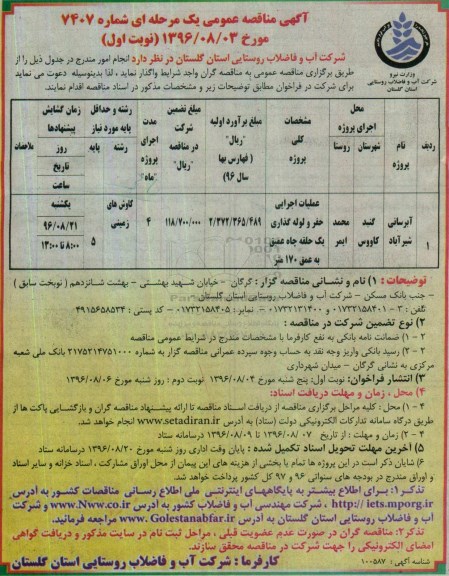 آگهی مناقصه عمومی یک مرحله ای شماره ۷۴۰۷
مورخ ۱۳۹۶/۰۸/۰۳ (نوبت اول)
وزارت نیرو
شرکت آب و فاضلاب روستایی
استان گلستان
شرکت آب و فاضلاب روستایی استان گلستان در نظر دارد انجام امور مندرج در جدول ذیل را از
طریق برگزاری مناقصه عمومی به مناقصه گران واجد شرایط واگذار نماید ، لذا بدینوسیله دعوت می نماید
برای شرکت در فراخوان مطابق توضیحات زیر و مشخصات مذکور در اسناد مناقصه اقدام نمایند.
ردیف
نام پروژه
محل اجرای پروژه
شهرستان
روستا
مشخصات کلی پروژه
مبلغ برآورد اولیه "ریال" ( فهارس بها سال ۹۶)
مبلغ تضمین شرکت در مناقصه "ریال"
مدت اجرای پروژه "ماه"
رشته و حداقل پایه مورد نیاز
رشته
پایه
زمان گشایش پیشنهادها
روز
تاریخ
ساعت
ملاحضات
۱
آبرسانی شیرآباد
گنبد کاووس
محمد ایمر
عملیات اجرایی حفر و لوله گذاری یک حلقه چاه عمق به عمق ۱۷۰ متر
۲/۳۷۲/۳۶۵/۴۸۹
۱۱۸/۷۰۰/۰۰۰
۴
کاوش های زمینی
۵
یکشنبه
۹۶/۰۸/۲۱
۸:۰۰ تا ۱۳:۰۰
توضیحات : ۱) نام و نشانی مناقصه گزار : گرگان – خیابان شهید بهشتی – بهشت شانزدهم ( نوبخت سابق )
– جنب بانک مسکن – شرکت آب و فاضلاب روستایی استان گلستان
تلفن : ۳ – ۰۱۷۳۲۱۵۸۴۰۱ و ۰۱۷۳۲۱۳۱۴۰۰ – نمابر : ۰۱۷۳۲۱۵۸۴۰۵ – کد پستی : ۴۹۱۵۶۵۸۵۳۴
۲) نوع تضمین شرکت در مناقصه :
۱ – ۲) ضمانت نامه بانکی به نفع کارفرما با مشخصات مندرج در شرایط عمومی مناقصه
۲ – ۲) رسید بانکی واریز وجه نقد به حساب وجوه سپرده عمرانی مناقصه گزار به شماره ۲۱۷۵۲۱۴۷۵۱۰۰۰ بانک ملی شعبه
مرکزی به نشانی گرگان – میدان شهرداری
۳) انتشار فراخوان: نوبت اول: پنج شنبه مورخ ۱۳۹۶/۰۸/۰۴ نوبت دوم : روز شنبه مورخ ۱۳۹۶/۰۸/۰۶
۴) محل ، زمان و مهلت دریافت اسناد:
۱ – ۴) محل : کلیه مراحل برگزاری مناقصه از دریافت اسناد مناقصه تا ارائه پیشنهاد مناقصه گران و بازگشایی پاکت ها از
طریق درگاه سامانه تدارکات الکترونیکی دولت (ستاد) به آدرس www.setadiran.ir انجام خواهد شد.
۲ – ۴) زمان و مهلت : از تاریخ ۱۳۹۶/۰۸/۰۷ تا ۱۳۹۶/۰۸/۰۹ درسامانه ستاد
۵) آخرین مهلت تحویل اسناد تکمیل شده : پایان وقت اداری روز شنبه مورخ ۱۳۹۶/۰۸/۲۰ درسامانه ستاد
۶) شایان ذکر است در این پروژه ها تمام یا بخشی از هزینه های این پیمان از محل اوراق مشارکت ، اسناد خزانه و سایر اسناد
و اوراق مندرج در بودجه های سنواتی ۹۶ و ۹۷ کل کشور پرداخت خواهد شد.
تذکر۱: برای اطلاع بیشتر به پایگاههای اینترنتی ملی اطلاع رسانی مناقصات کشور به آدرس
http:// iets.mporg.ir ، شرکت مهندسی آب و فاضلاب کشور به آدرس www.Nww.co.ir و شرکت
آب و فاضلاب روستایی استان گلستان به آدرس www. Golestanabfar.ir مراجعه فرمائید.
تذکر۲: مناقصه گران در صورت عدم عضویت قبلی ، مراحل ثبت نام در سایت مذکور و دریافت گواهی
امضای الکترونیکی را جهت شرکت در مناقصه محقق سازند.
شناسه آگهی: ۱۰۰۵۸۷
کارفرما : شرکت آب و فاضلاب روستایی استان گلستان